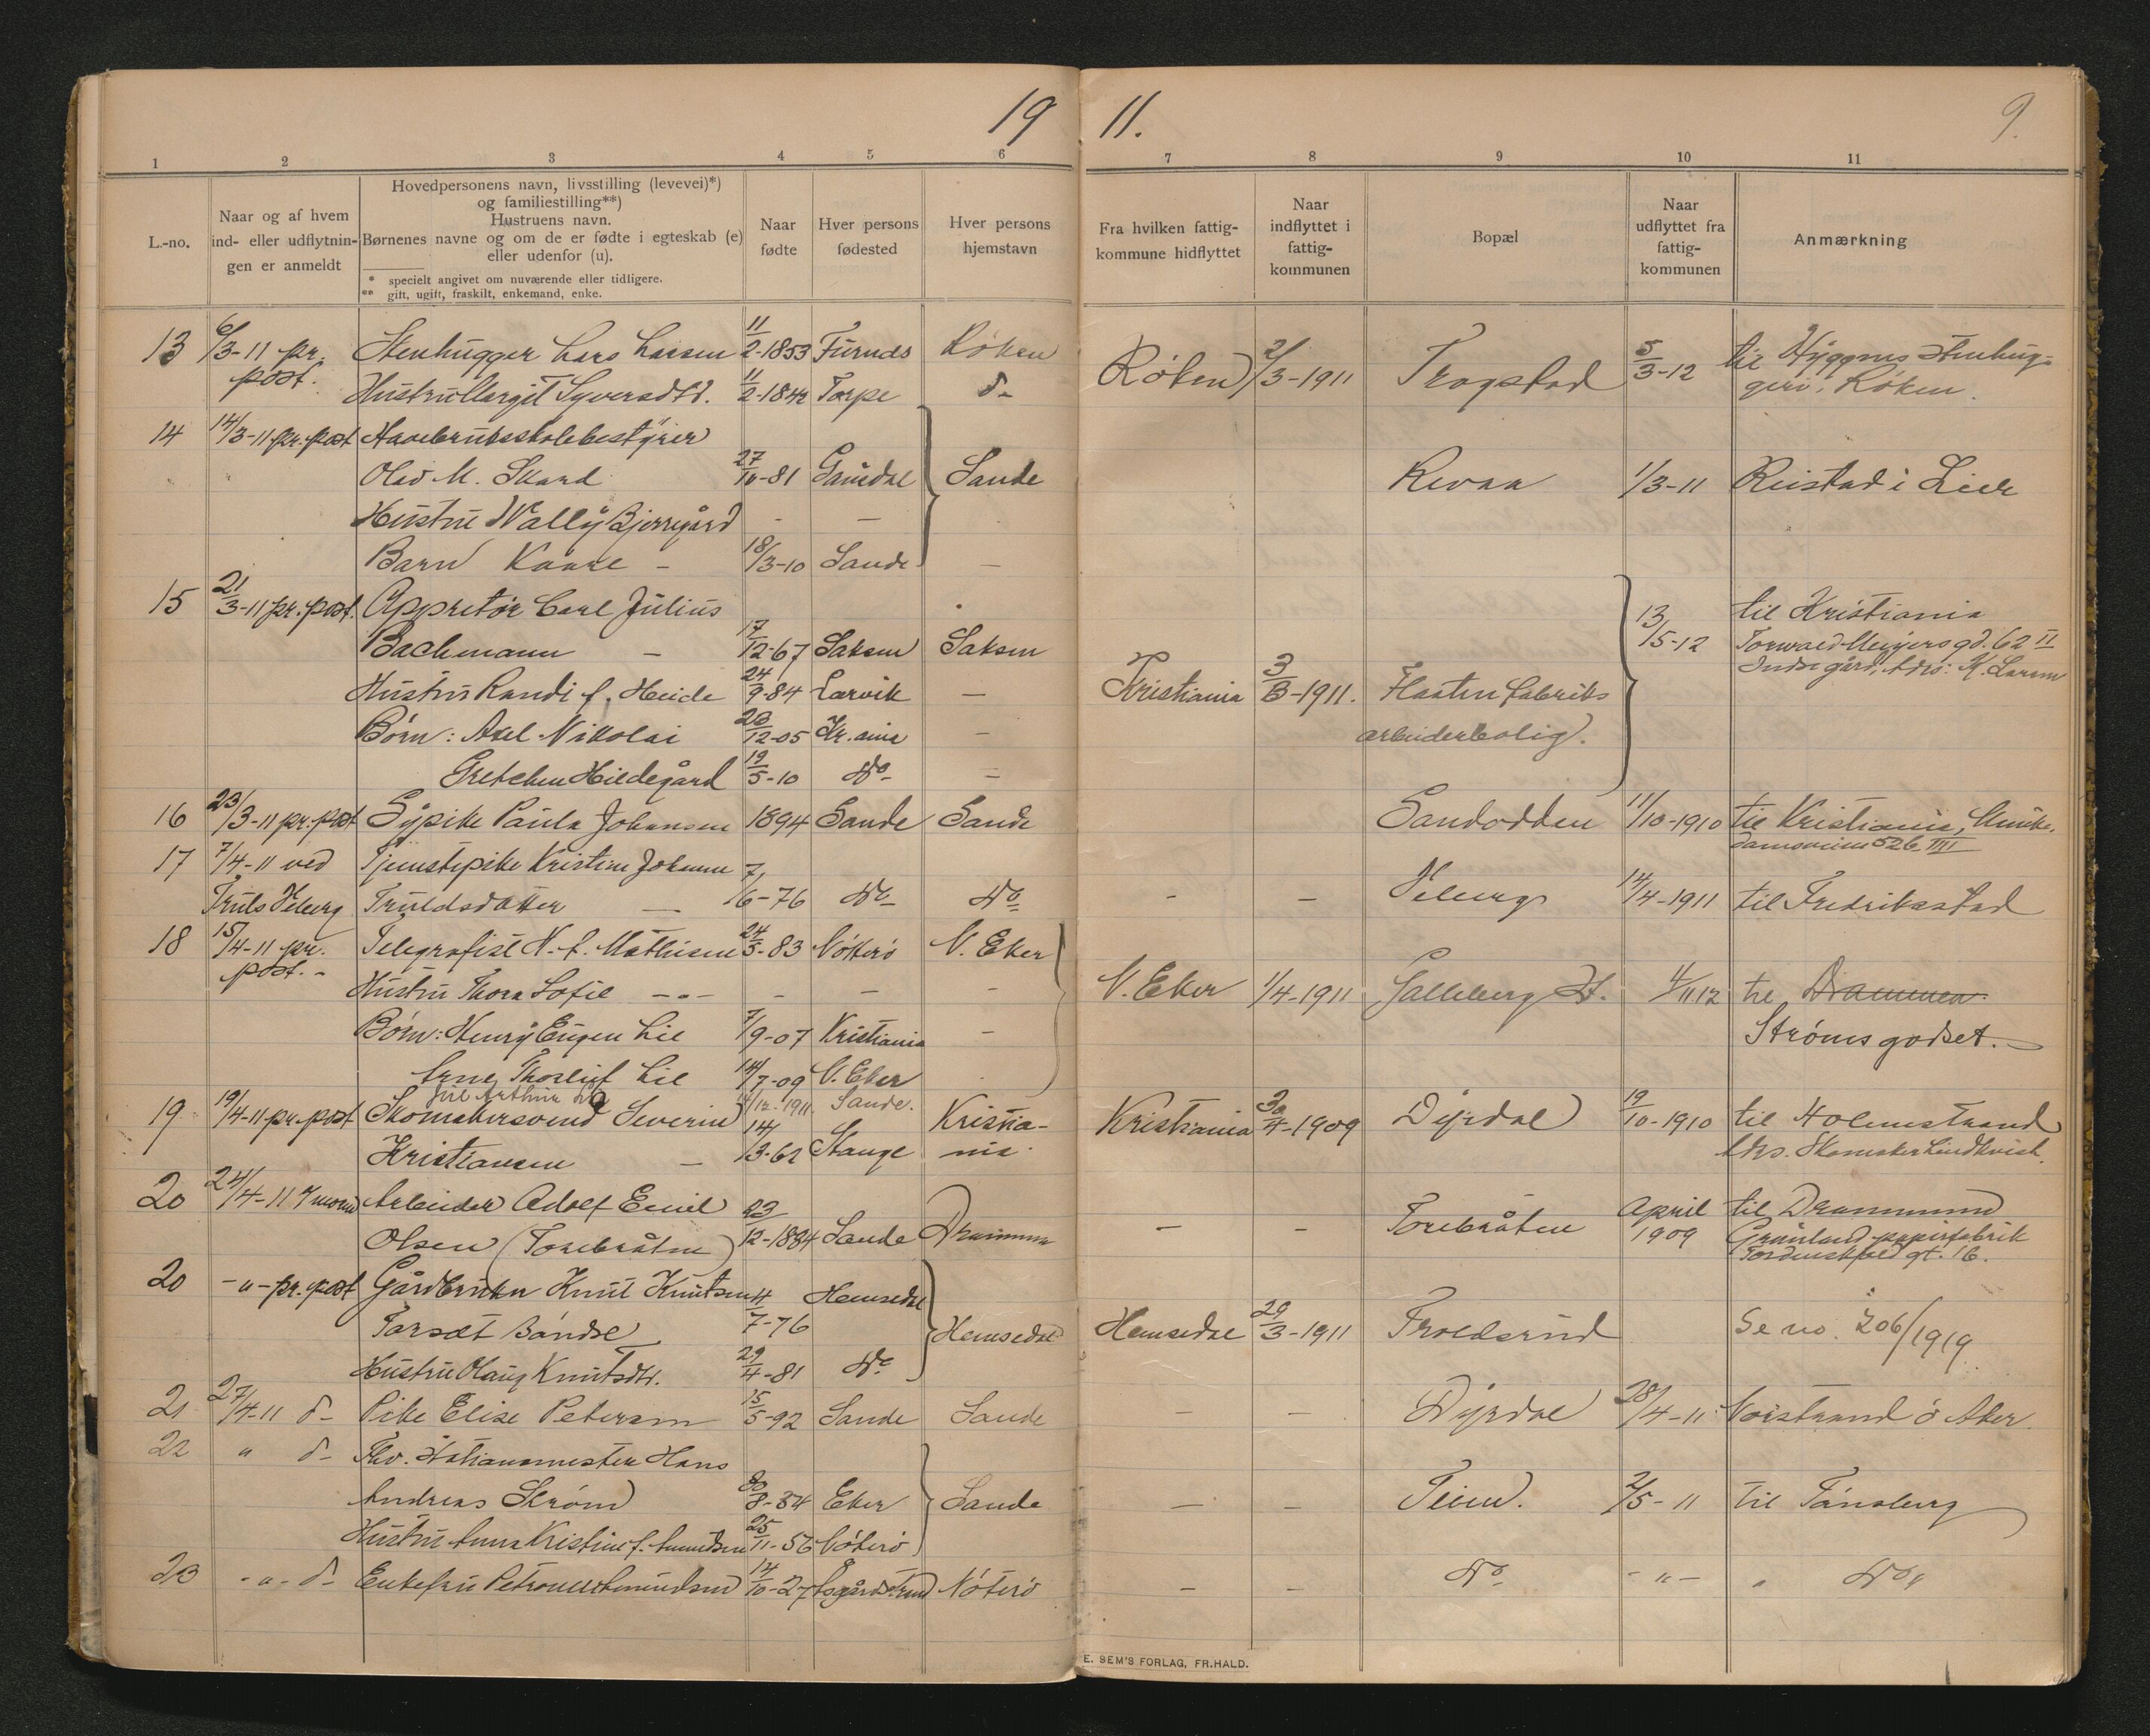 19 11. 9.
1 2 3 4 5 6 7 8 9 10 11
L.-no.
Naar og af hvem
ind- eller udflytnin-
gen er anmeldt
Hovedpersonens navn, livsstilling (levevei)*)
og familiestilling**)
Hustruens navn.
Børnenes navne og om de er fødte i egteskab (e)
eller udenfor (u).
* specielt angivet om nuværende eller tidligere.
** gift, ugift, fraskilt, enkemand, enke.
Naar
fødte
Hver persons
fødested
Hver persons
hjemstavn
Fra hvilken fattig-
kommune hidflyttet
Naar
indflyttet i
fattig-
kommunen
Bopæl
Naar
udflyttet fra
fattig-
kommunen
Anmærkning
13 6/3-11 pr. Stenhugger Lars Larsen 11/2-1853 Furnds Røken Røken 2/3-1911 Trogstad 5/3-12 til Hyggens Stenhug-
post. Hustru Margit Syversdtr. 11/2-1842 Torpe d- geri, Røken.
14 14/3-11 pr. post Havebruksskolebestyrer
Olav M. Skard 27/10-81 Gausdal Sande Revaa 1/3-11 Reistad i Lier
Hustru Wally Bjerregård - -
Barn Kaare - 18/3-10 Sande -
15 21/3-11 pr. post. Appretør Carl Julius 13/5-12 til Kristiania
Bachmann - 17/12-67 Saksen Saksen Torvald Meyers gd. 62 II
Hustru Randi f. Heide 24/9-84 Larvik - Kristiania 3/3-1911. Flaaten fabriks Indre gård, Adrs: K. Larsen
Børn: Axel Nikolai 23/12-05 Kr.ania - arbeiderbolig.
Gretchen Hildegård 19/5-10 do -
16 23/3-11 pr. post Sypike Paula Johansen 1894 Sande Sande Sandodden 11/10-1910 til Kristiania, Munke-
damsveien 526 IIII
17 7/4-11 ved Tjenestepike Kristine Johanne
Truls Veberg Truldsdatter - 7/6-76 do do - - Veberg 14/4-1911 til Fredrikastad
18 15/4-11 pr. Telegrafist N. f. Mathisen 24/5-83 Nøtterø N. Eker
post. - Hustru Thora Sofie - - - - - N. Eker 1/4-1911 Galleberg St. 4/11 12 til Drammen
Børn: Henry Eugen Lie 7/9-07 Kristiania - Strømsgodset. -
Arne Thorleif Lie 14/7-09 N. Eker
Arthur Lie 1911. Sande.
19 19/4-11 pr. post Skomakersvend Severin Kristia- Kristiania 30/4-1909 Dyrdal 19/10-1910 til Holmestrand
Kristiansen - 14/3-62 Stange nia. Adrs. Skomaker Lindkvist.
20 24/4-11 Arbeider Adolf Emil April til Drammen
Olsen (Torebråten) 23/12-1884 Sande Drammen - - Torebråten 1909 Grønland papirfabrik
Tordenskjold gt. 16.
20 -"- pr. post Gårdbruker Knut Knutsen 4/7-76 Hemsedal
Torsæt Bøndse Hemsedal Hemsedal 29/3-1911 Troldsrud Se no. 206/1919
Hustru Olaug Knutsdtr. 29/4-81 do
21 27/4-11 d- Pike Elise Petersen 15/5-92 Sande Sande - - Dyrdal 28/4-11 Norstrand ø Aker.
22 " d- Fhv. Stationsmester Hans
Andreas Strøm 30/8-34 Eker Sande - - Teien. 2/5-11 til Tønsberg
Hustru Anna Kristine f. Amundsen 25/11-56 Nøterø
23 -"- d- Enkefru Petronelle Amundsen 14/10-27 Åsgårdstrand Nøterø - - do -"- " do
E. SEM'S FORLAG, FR.HALD.